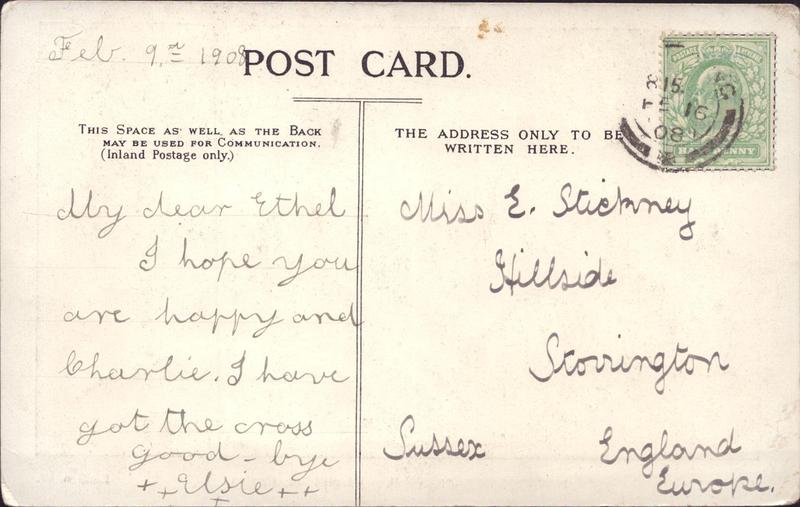 Feb. 9th 1908
POST CARD.
THIS SPACE AS WELL AS THE BACK
MAY BE USED FOR COMMUNICATION.
(Inland Postage only.)
THE ADDRESS ONLY TO BE
WRITTEN HERE.
My dear Ethel
I hope you
are happy and
Charlie. I have
got the cross
good-bye
++Elsie++
+
Miss E. Stickney
Hillside
Storrington
Sussex England
Europe.
8 15
FE 16
08
HALFPENNY